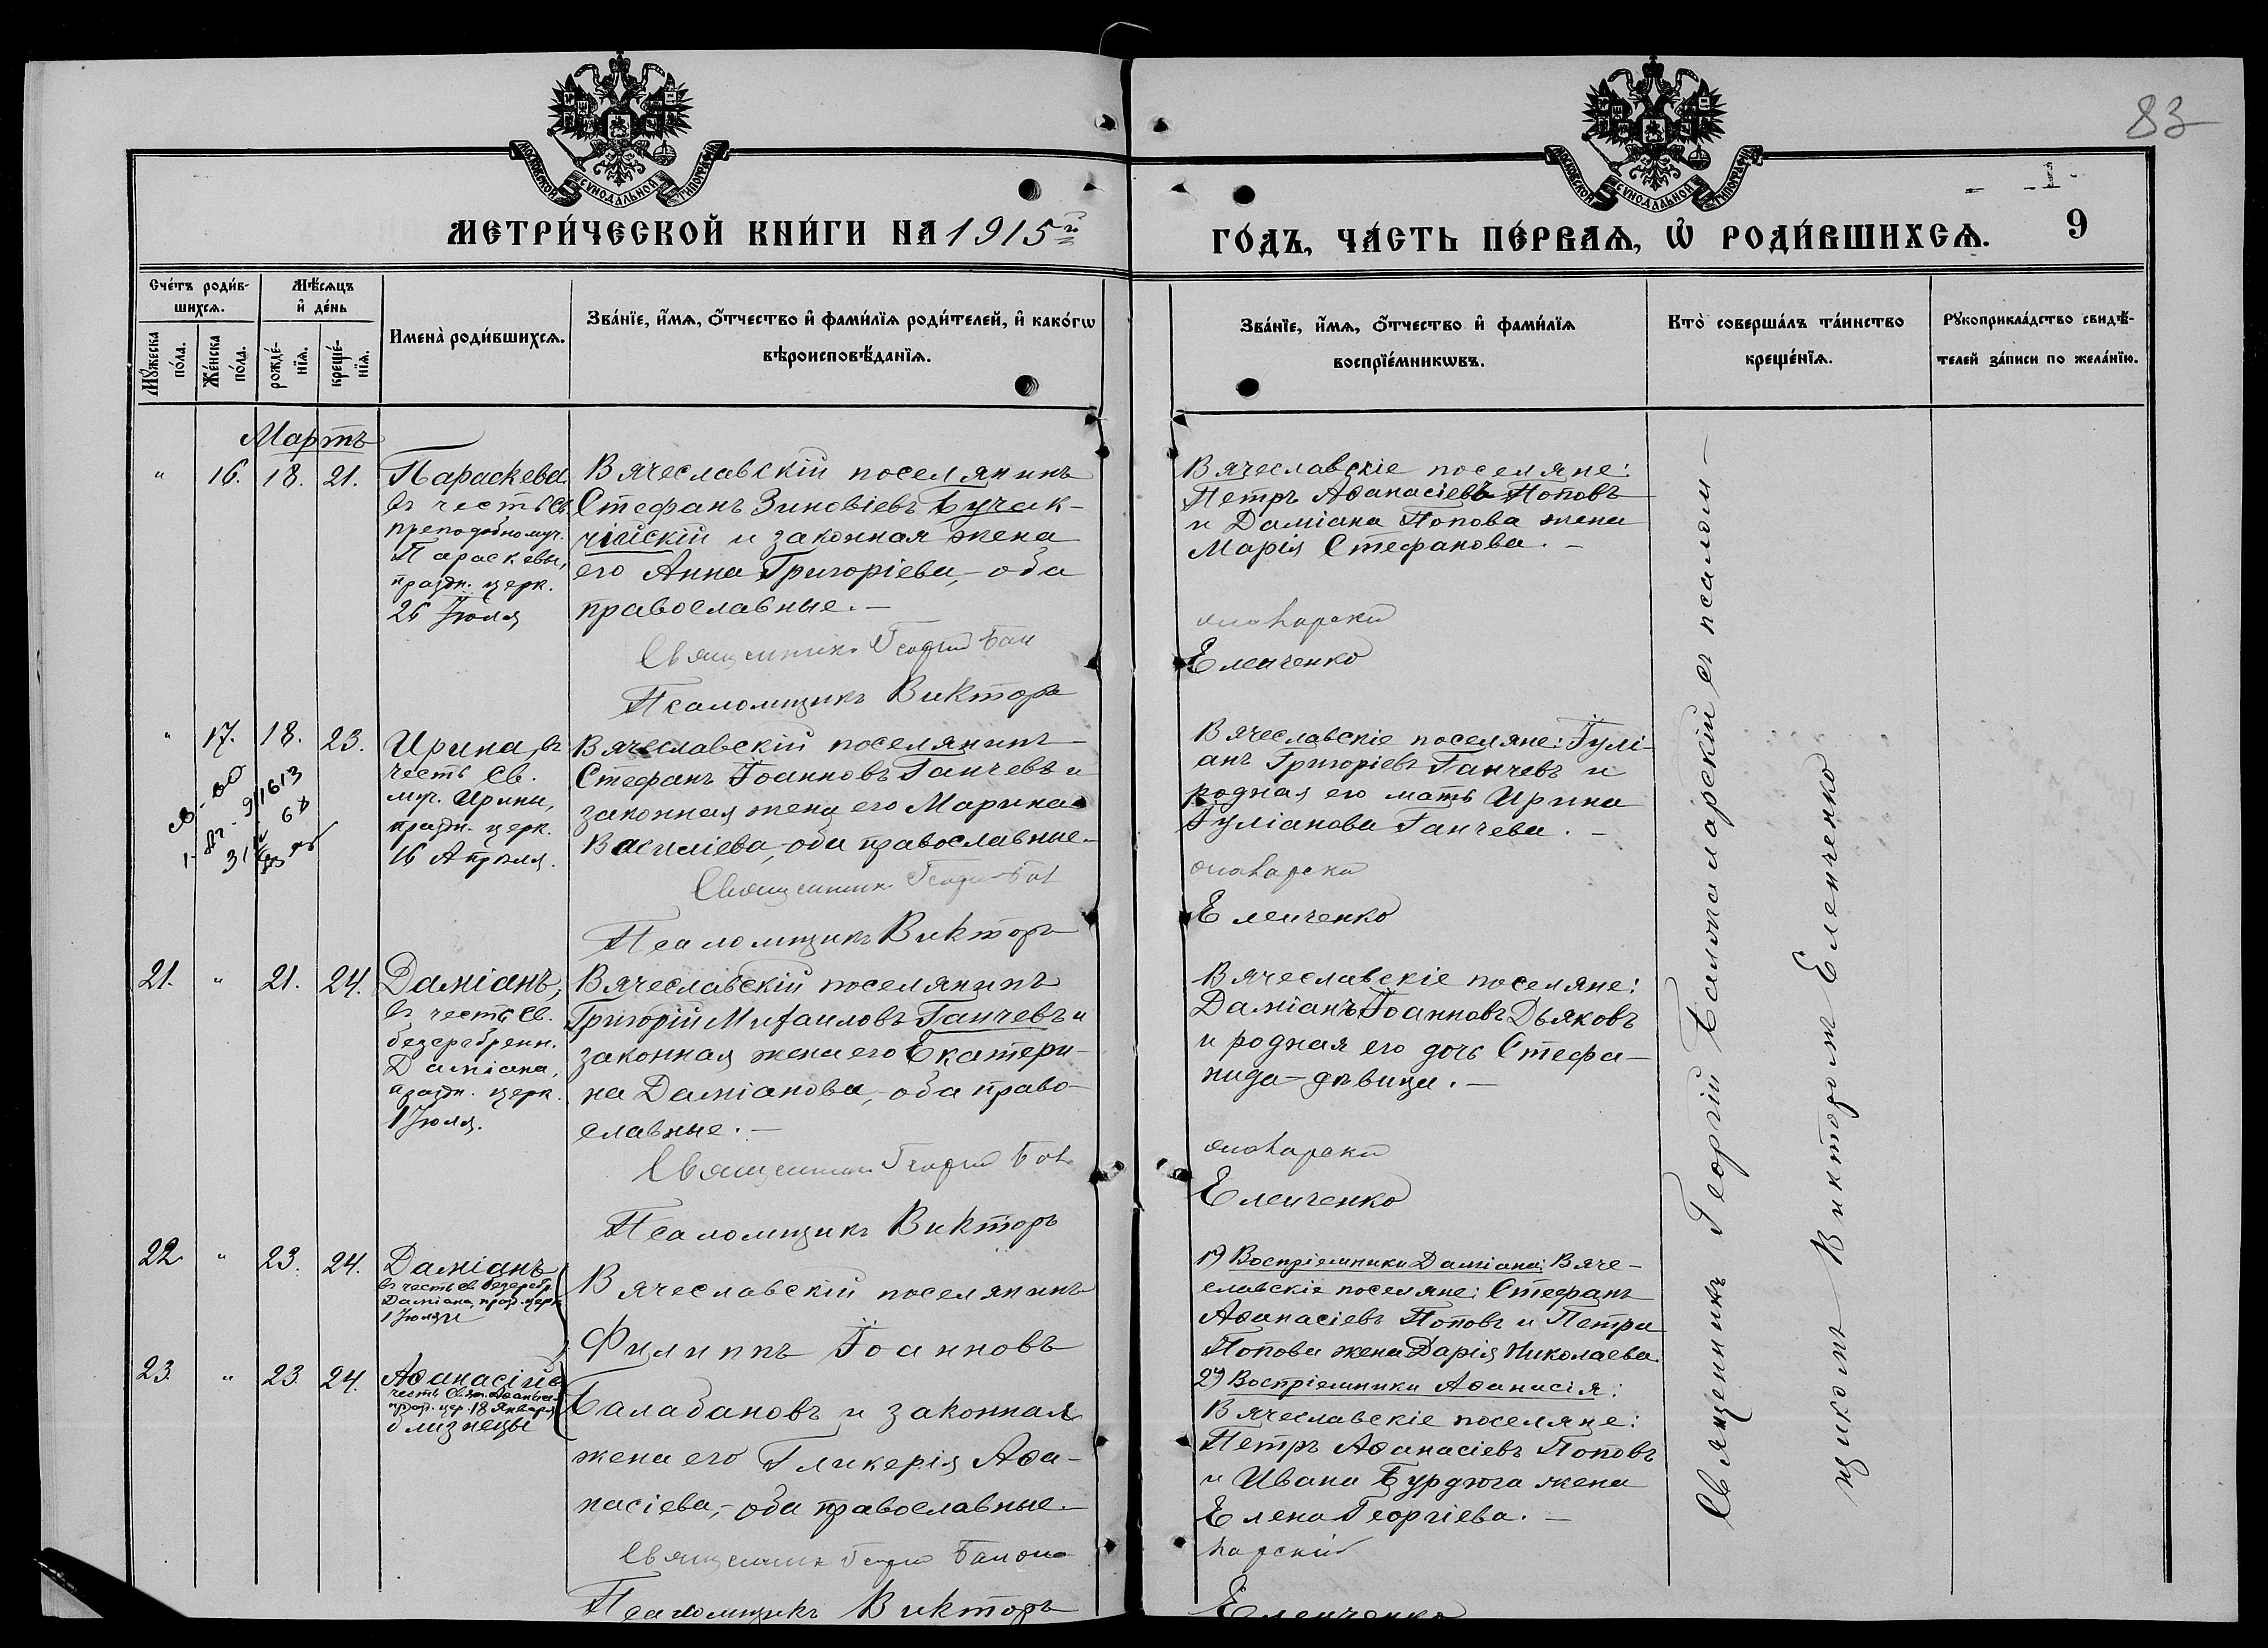 83
МОСКОВСКОЙ СѴНОДАЛЬНОЙ ТИПОГРАФІИ
МОСКОВСКОЙ СѴНОДАЛЬНОЙ ТИПОГРАФІИ
1
МЕТРИ́ЧЕСКОЙ КНИ́ГИ НА 1915й
ГО́ДЪ, ЧА́СТЬ ПЕ́РВАѦ, Ѡ҆ РОДИ́ВШИХСѦ.
9
Сче́тъ роди́в-
шихсѧ.
Мѣ́сѧцъ
и҆ де́нь
Мꙋ́жеска
по́ла.
Же́нска
по́ла.
рожде́-
нїѧ.
креще́-
нїѧ.
Имена̀ роди́вшихсѧ.
Зва́нїе, и҆́мѧ, ѻ҆́тчество и҆ фами́лїѧ роди́телей, и҆ како́гѡ
вѣроисповѣ́данїѧ.
Зва́нїе, и҆́мѧ, ѻ҆́тчество и҆ фами́лїѧ
воспрїе́мникѡвъ.
Кто̀ соверша́лъ та́инство
креще́нїѧ.
Рꙋкоприкла́дство свидѣ́-
телей за́писи по жела́нїю.
Мартъ
" 16. 18. 21.
Параскева
въ честь Св.
преподобномуч.
Параскевы,
праздн. церк.
26 Іюля
Вячеславскій поселянинъ
Стефанъ Зиновіевъ Бучак-
чійскій и законная жена
его Анна Григоріева,- оба
православные.-
Священникъ Георгій Бал
Псаломщикъ Викторъ
Вячеславскіе поселяне:
Петръ Аѳанасіевъ Поповъ
и Даміана Попова жена
Марія Стефанова.-
Еленченко
" 17. 18. 23.
Ирина, въ
честь Св.
муч. Ирины,
праздн. церк.
16 Апрѣля.
Вячеславскій поселянинъ
Стефанъ Іоанновъ Ганчевъ и
законная жена его Марина
Василіева,-оба православные.-
Священникъ Георгій Бал
Псаломщикъ Викторъ
Вячеславскіе поселяне: Гулі-
анъ Григоріевъ Ганчевъ и
родная его мать Ирина
Гуліанова Ганчева.-
Еленченко
21. " 21. 24.
Даміанъ,
въ честь Св.
безсребренн.
Даміана,
праздн. церк.
1 Іюля.
Вячеславскій поселянинъ
Григорій Михаиловъ Ганчевъ и
законная жена его Екатери-
на Даміанова,- оба право-
славные.-
Священникъ Георгій Бал
Псаломщикъ Викторъ
Вячеславскіе поселяне:
Даміанъ Іоанновъ Дьяковъ
и родная его дочь Стефа-
нида-дѣвица.-
Еленченко
22. " 23. 24.
Даміанъ
въ честь Св. безсребр.
Даміана, празд. церк.
1 Іюля и
23. " 23. 24.
Аѳанасій въ
честь Свят. Аѳанасія
празд. цер. 18 Января
близнецы
Вячеславскій поселянинъ
Филиппъ Іоанновъ
Балабановъ и законная
жена его Гликерія Аѳа-
насіева,- оба православные.-
Священникъ Георгій
Псаломщикъ Викторъ
1) Воспріемники Даміана: Вяче-
славскіе поселяне: Стефанъ
Аѳанасіевъ Поповъ и Петра
Попова жена Дарія Николаева.
2) Воспріемники Аѳанасія:
Вячеславскіе поселяне:
Петръ Аѳанасіевъ Поповъ
и Ивана Бурдюга жена
Елена Георгіева.-
Еленченко
Священникъ Георгій с псалом-
щикомъ Викторомъ Еленченко